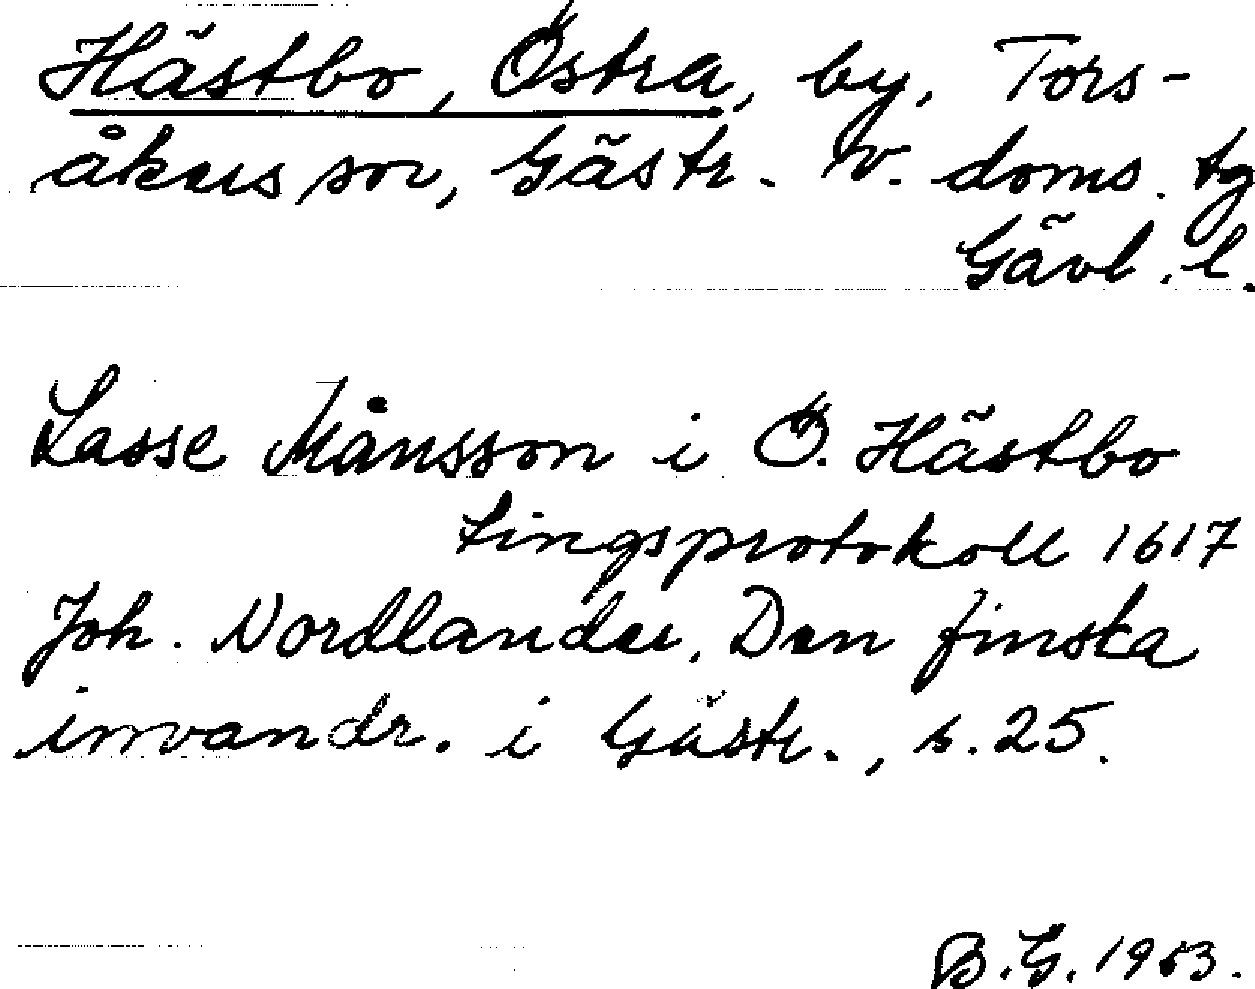 Hästbo, Östra, by, Tors-
åkers sn, Gästr. V. doms. tg
Gävl. l.
Lasse Månsson i Ö. Hästbo
tingsprotokoll 1617
Joh. Nordlander, Den finska
invandr. i Gästr., s. 25.
B.G. 1953.